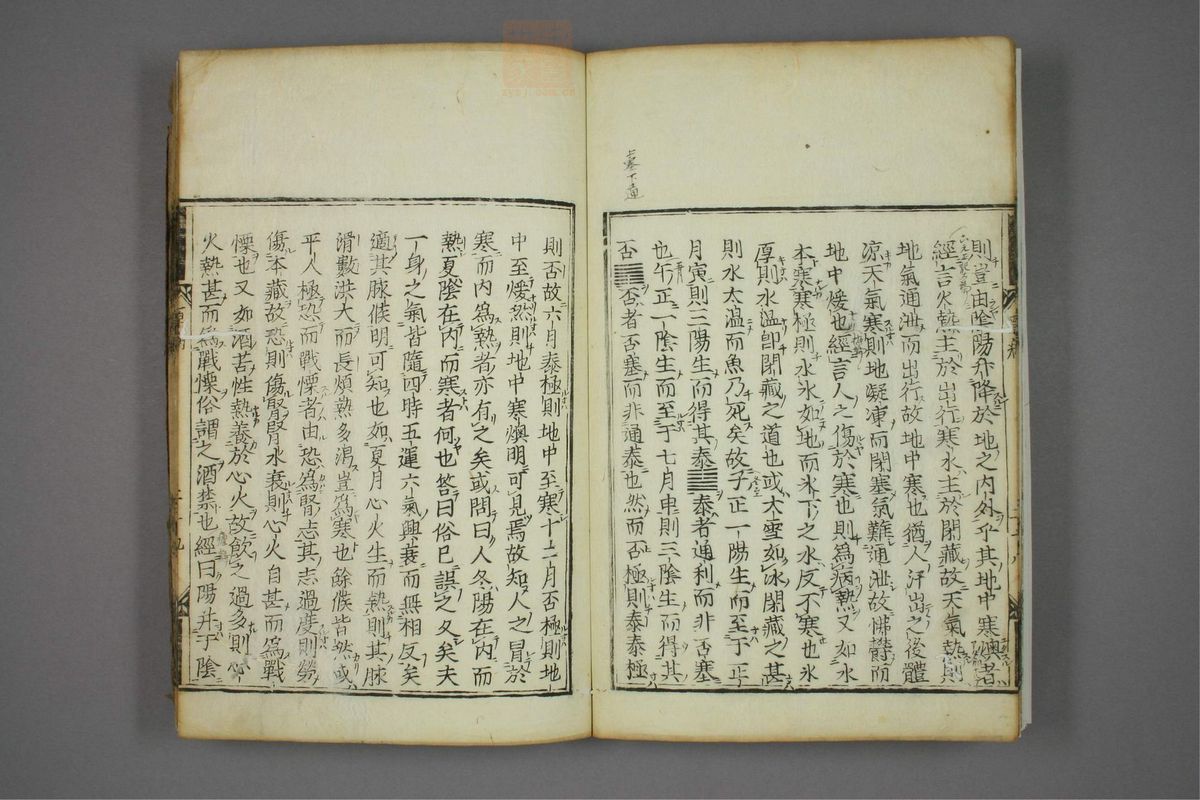 則豈由陰陽升降於地之內外乎其地中寒燠者
經言火熱主於出行寒水主於閉藏故天氣熱則
地氣通泄而出行故地中寒也猶人汗出之後體
凉天氣寒則地凝凍而閉塞氣難通泄故怫欝而
地中煖也經言人之傷於寒也則爲病熱又如水
本寒寒極則水氷如地而氷下之水反不寒也氷
厚則水溫卽閉藏之道也或大雪如氷閉藏之甚
則水太溫而魚乃死矣故子正一陽生而至于正
月寅則三陽生而得其泰䷊泰者通利而非否塞
也午正一陰生而至于七月申則三陰生而得其
否䷋否者否塞而非通泰也然而否極則泰泰極
則否故六月泰極則地中至寒十二月否極則地
中至煖然則地中寒燠明可見焉故知人之冒於
寒而內爲熱者亦有之矣或問曰人冬陽在內而
熱夏陰在內而寒者何也答曰俗已誤之久矣夫
一身之氣皆隨四時五運六氣興衰而無相反矣
適其脉候明可知也如夏月心火生而熱則其脉
滑數洪大而長煩熱多渴豈爲寒也餘候皆然或
平人極恐而戰慄者由恐爲腎志其志過度則勞
傷本藏故恐則傷腎腎水衰則心火自甚而爲戰
慄也又如酒苦性熱養於心火故飮之過多則心
火熱甚而爲戰慄俗謂之酒禁也經曰陽并于陰
上塞下通